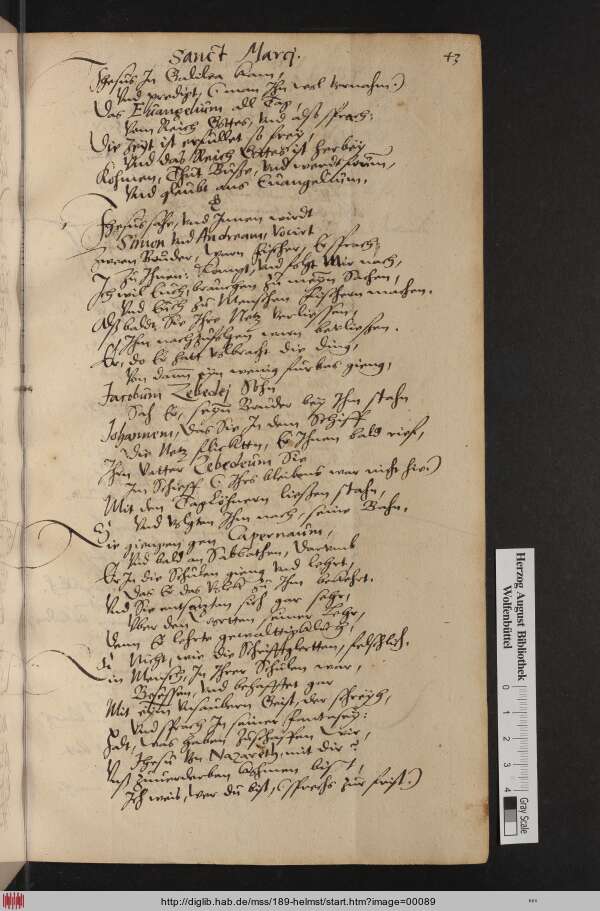 Sanct Marcj.
43
Jhesus In Galilea kam,
Und predigt (: man Ihn wol vernahm :)
Das Euangelium all Tag,
Vom Reich Gottes, Und also sprach:
Die Zeyt ist erfüllet so frey,
Und das Reich Gottes ist herbey
Kohmen, Thut Busse, Und werdt from,
Und glaubt ans Euangelium.
Jhesus sahe, Und Innen wirdt
Simon Und Andream,
zween Brüder, warn Fischer, Er sprach:
Zu Ihnen: Kompt, Und folgt Mir nach,
Ich wil Euch, zu meyn Sachen,
Und Euch zu Menschen Fischern machen.
Alss baldt Sie Ihre Netz verliessen,
Ihm nachzufolgen
Er, do Er hatt volbracht die ding,
Von dann eyn wenig fürbas gieng,
Jacobum Zebedej Sohn
Sah Er, seyn Bruder bey Ihm stahn
Johannem, Das Sie In dem Schiff
Die Netz flickten, Er Ihnen bald rieff,
Ihrn Vatter Zebedeum Sie
Im Schieff (: Ihrs bleibens war nicht hie :)
Mit den Taglöhnern liessen stahn,
Und volgten Ihm nach, seine Bahn.
Sie giengen gen Capernaum,
Und bald an Sabbathen, darumb
Er In die Schulen gieng Und lehrt,
Das Er das Volck zu Ihm bekehrt.
Und Sie entsatzten sich gar sehr,
Uber den wortten seiner Lehr,
Denn Er lehrte gewaltiglich,
Nicht, wie die Schrifftglertten, felschlich.
Ein Mensch, In Ihrer Schulen war,
Besessen, Und behafftet gar
Mit eym Unsaubern Geist, der schreyh,
Und sprach In seiner fantasey:
Halt, Was haben zuschaffen Wir,
Jhesu Von Nazareth, mit dir?
Unss zuuerderben kohmen bist,
Ich weis, wer du bist, (: sprechs zur frist :)
Herzog August Bibliothek
Wolfenbüttel
0 1 2 3 4
Gray Scale
http://diglib.hab.de/mss/189-helmst/start.htm?image=00089